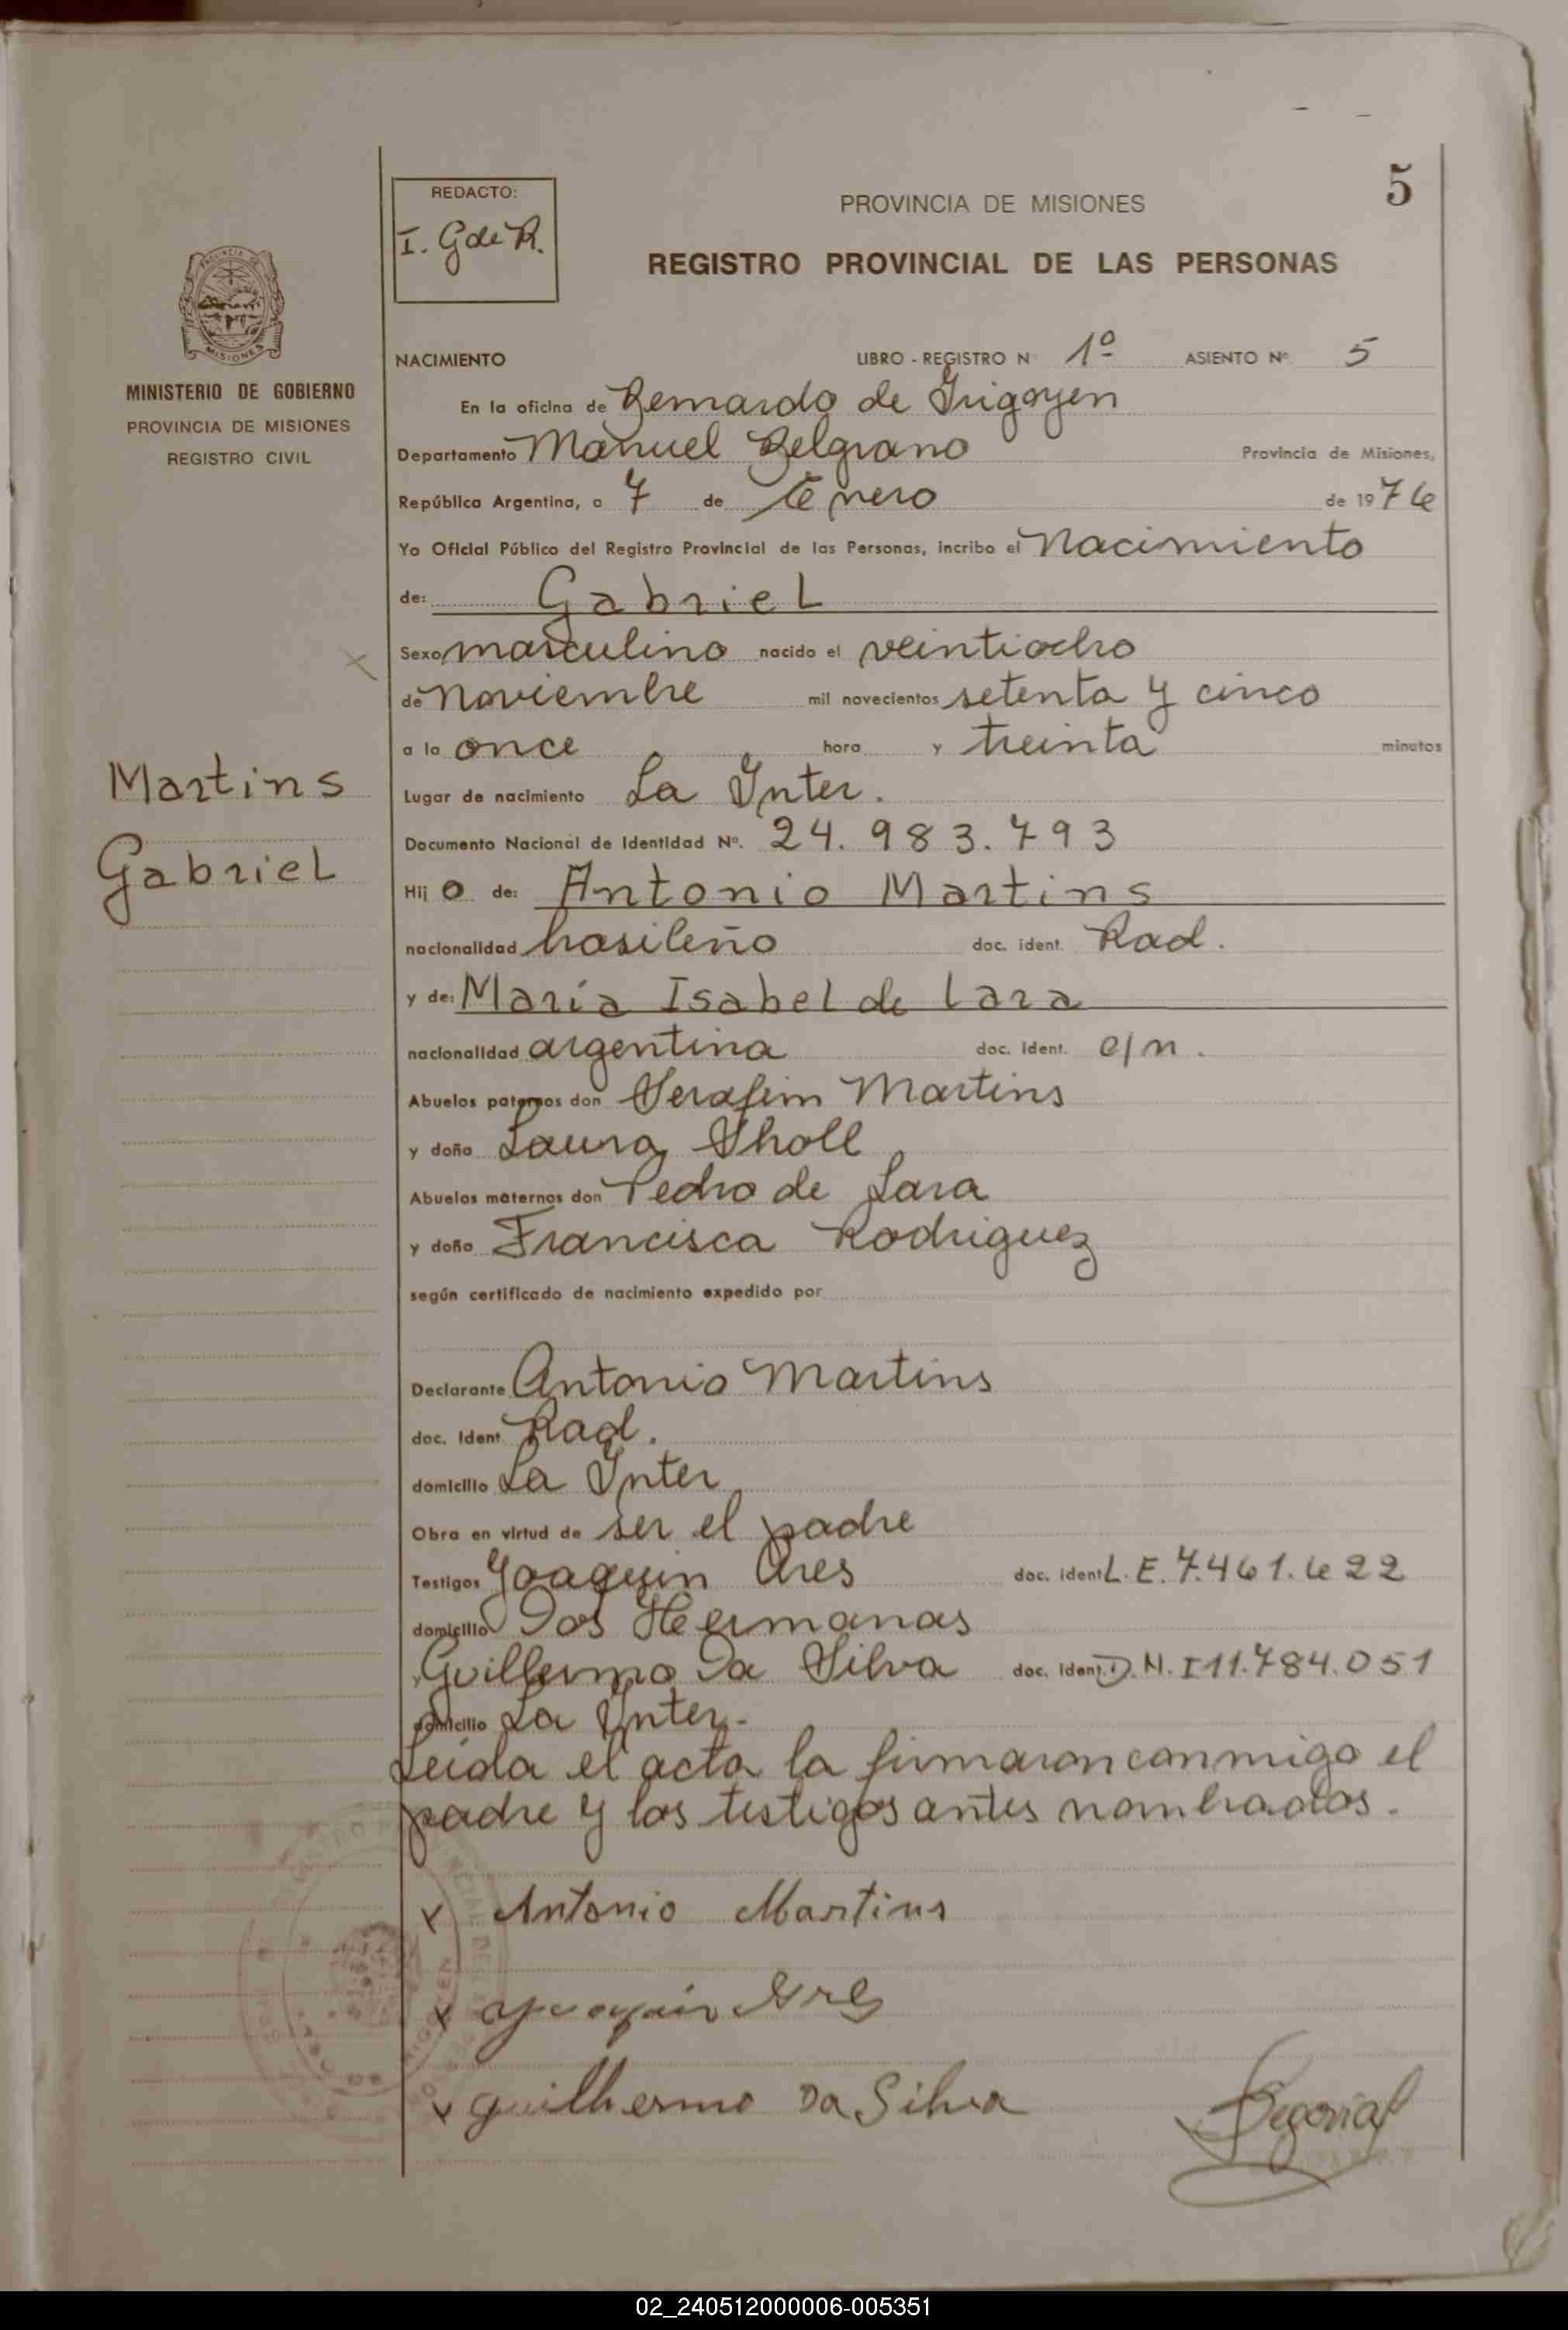 5
REDACTO:
I. G de R.
PROVINCIA DE MISIONES
REGISTRO PROVINCIAL DE LAS PERSONAS
MISIONES
MINISTERIO DE GOBIERNO
PROVINCIA DE MISIONES
REGISTRO CIVIL
NACIMIENTO LIBRO - REGISTRO Nº 1º ASIENTO Nº 5
En la oficina de Bernardo de Irigoyen
Departamento Manuel Belgrano Provincia de Misiones,
República Argentina, a 7 de Enero de 1976
Yo Oficial Público del Registro Provincial de las Personas, incribo el Nacimiento
de: Gabriel
Sexo masculino nacido el veintiocho
de noviembre mil novecientos setenta y cinco
a la once hora y treinta minutos
Martins
Gabriel
Lugar de nacimiento La Inter.
Documento Nacional de Identidad Nº. 24.983.793
Hijo de: Antonio Martins
nacionalidad brasileño doc. ident. Rad.
y de: María Isabel de Lara
nacionalidad argentina doc. ident.
Abuelos paternos don Serafim Martins
y doña Laura Sholl
Abuelos maternos don Pedro de Lara
y doña Francisca Rodriguez
según certificado de nacimiento expedido por
Declarante Antonio Martins
doc. Ident Rad.
domicilio La Inter
Obra en virtud de ser el padre
Testigos Joaquin Ares doc. ident L.E. 7.461.622
domicilio Dos Hermanas
Guillermo Da Silva doc. ident. D.N.I 11.784.051
domicilio La Inter.
Leida el acta la firmaron conmigo el
padre y los testigos antes nombrados.
x Antonio Martins
x Joaquin Ares
x Guilhermo Da Silva
02_240512000006-005351